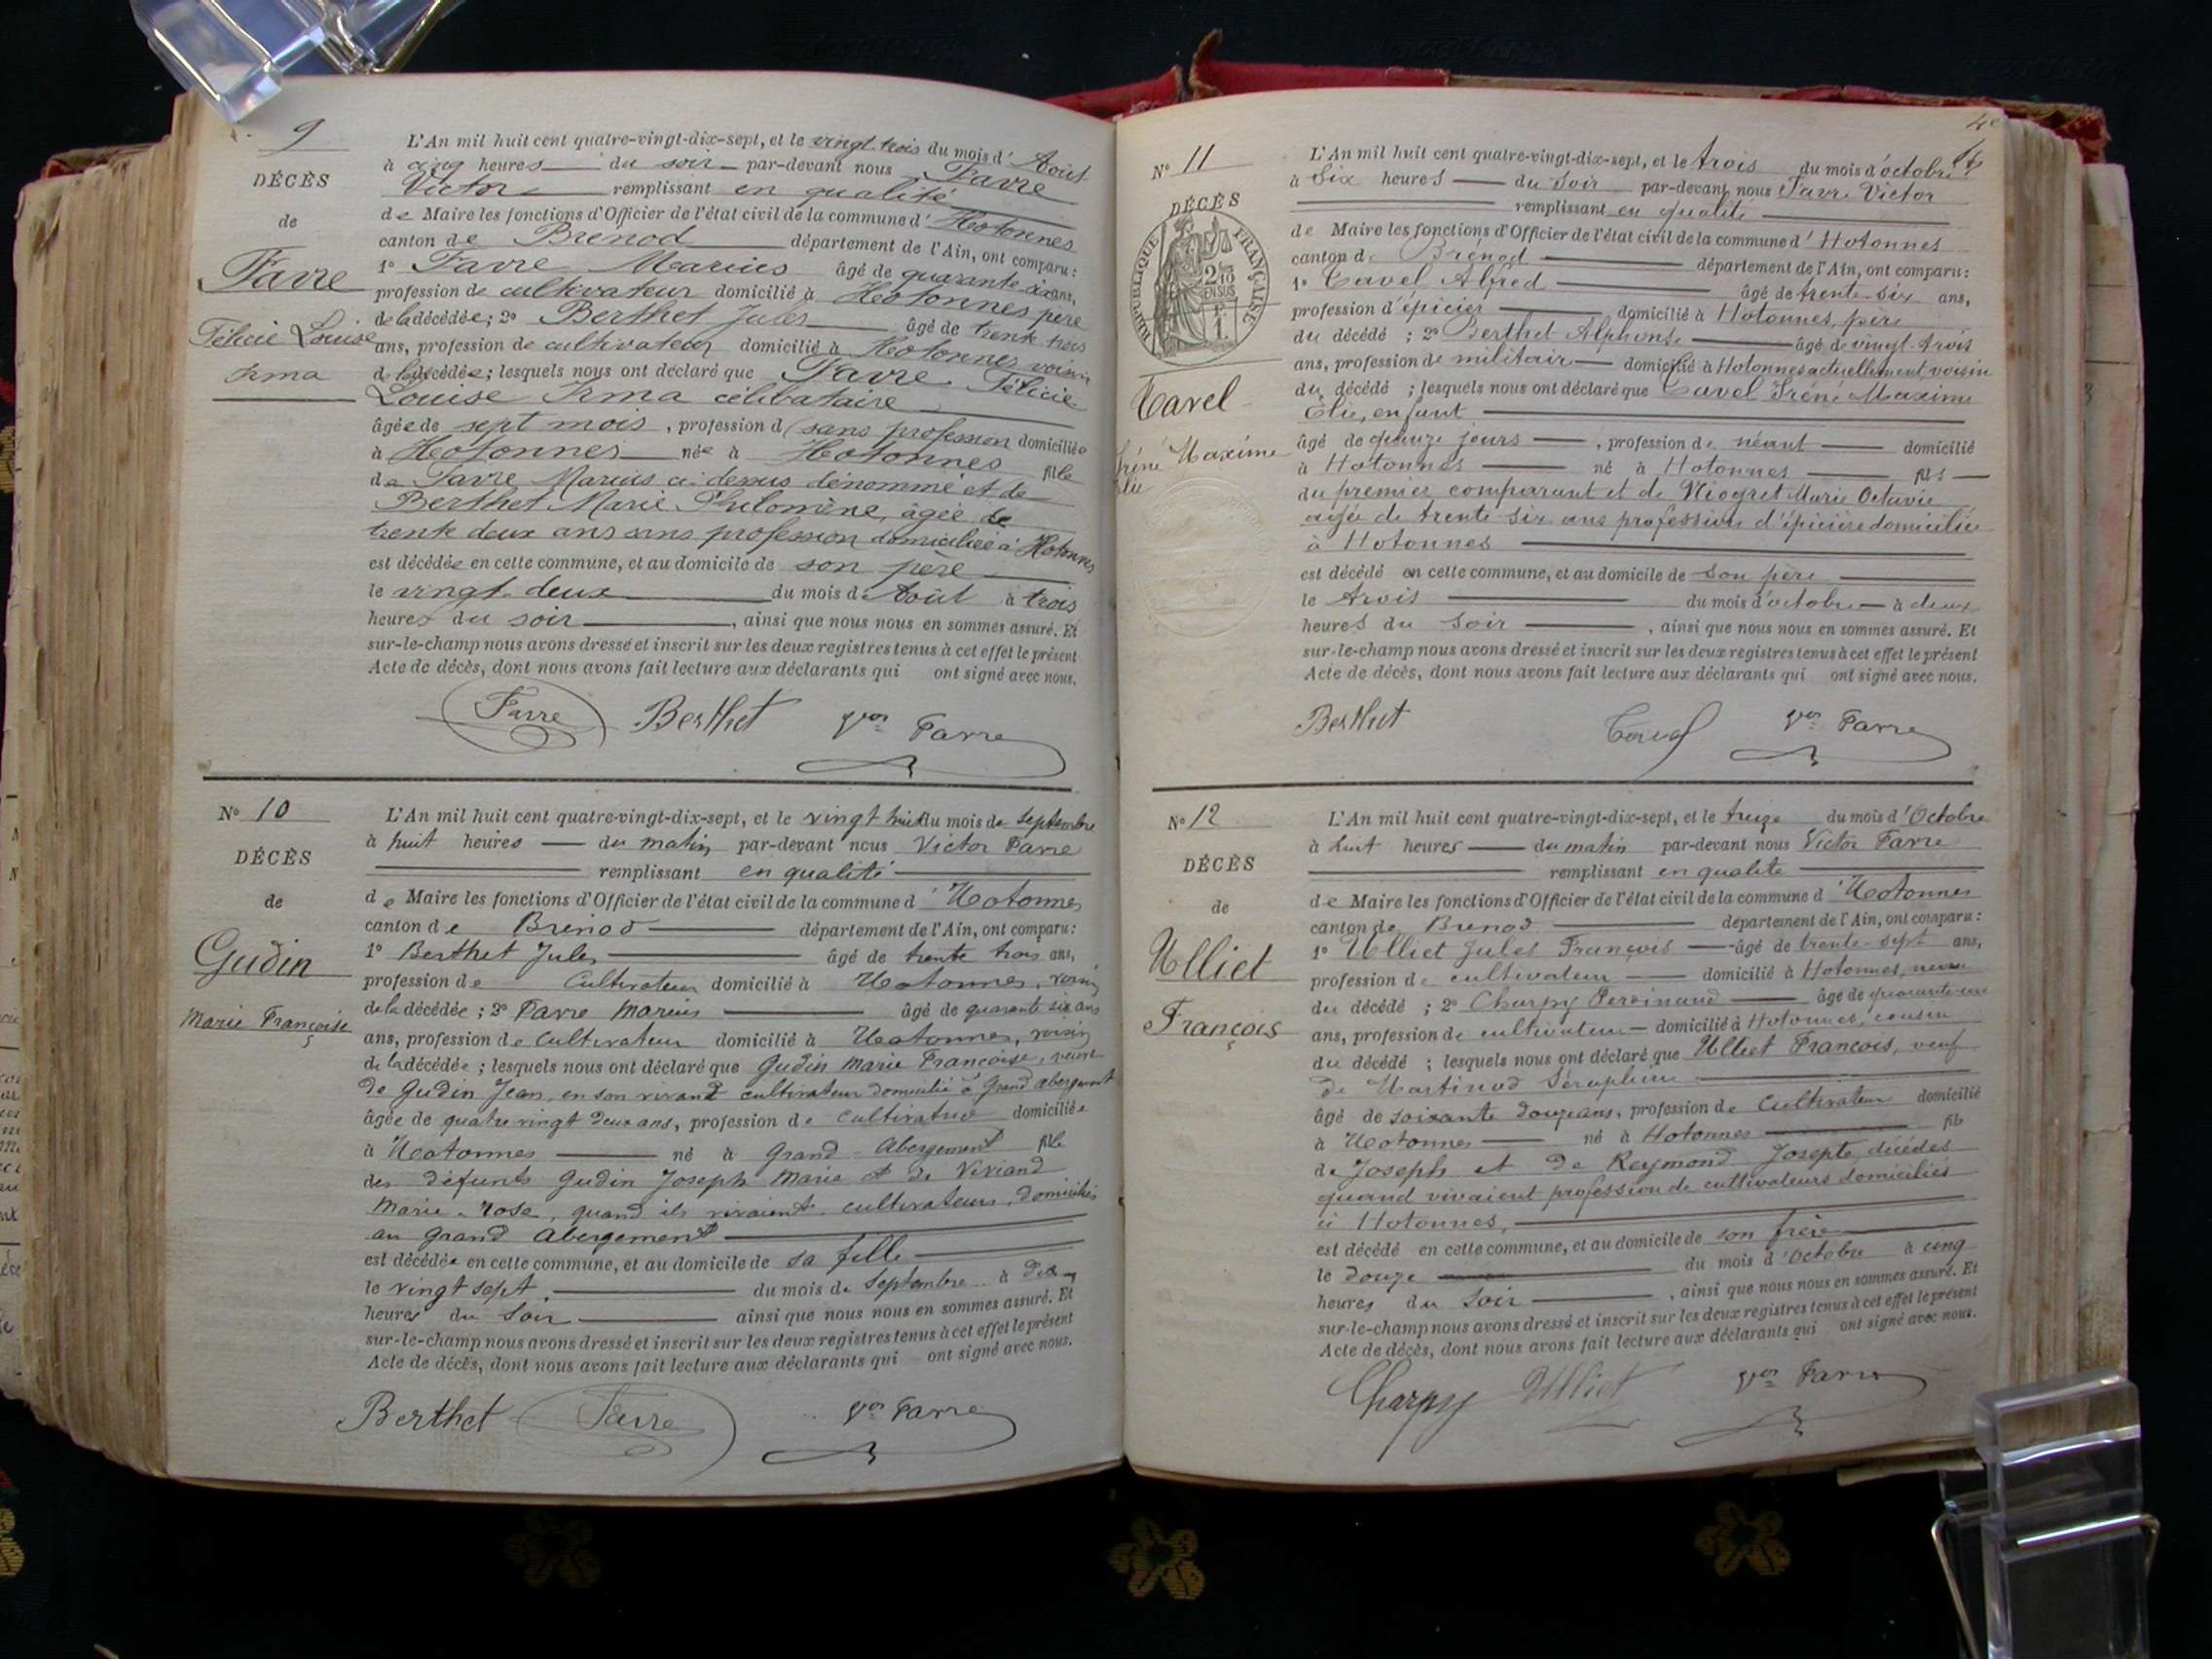 9
DÉCÈS
de
Favre
Félicie Louise
Irma
L'An mil huit cent quatre-vingt-dix-sept, et le vingt trois du mois d'Août
à cinq heures du soir par-devant nous Favre
Victor remplissant en qualité
de Maire les fonctions d'Officier de l'état civil de la commune d'Hotonnes
canton de Brénod département de l'Ain, ont comparu:
1° Favre Marius âgé de quarante six ans,
profession de cultivateur domicilié à Hotonnes père
de la décédée; 2° Berthet Jules âgé de trente trois
ans, profession de cultivateur domicilié à Hotonnes, voisin
de la décédée; lesquels nous ont déclaré que Favre Félicie
Louise Irma célibataire
âgée de sept mois, profession d sans profession domiciliée
à Hotonnes née à Hotonnes fille
de Favre Marius ci-dessus dénommé et de
Berthet Marie Philomène, âgée de
trente deux ans sans profession domiciliée à Hotonnes
est décédée en cette commune, et au domicile de son père
le vingt deux du mois d'Août à trois
heures du soir, ainsi que nous nous en sommes assuré. Et
sur-le-champ nous avons dressé et inscrit sur les deux registres tenus à cet effet le présent
Acte de décès, dont nous avons fait lecture aux déclarants qui ont signé avec nous.
Favre Berthet Vor Favre
N° 10
DÉCÈS
de
Gudin
Marie Françoise
L'An mil huit cent quatre-vingt-dix-sept, et le vingt huit du mois de septembre
à huit heures du matin par-devant nous Victor Favre
remplissant en qualité
de Maire les fonctions d'Officier de l'état civil de la commune d'Hotonnes
canton de Brénod département de l'Ain, ont comparu:
1° Berthet Jules âgé de trente trois ans,
profession de Cultivateur domicilié à Hotonnes, voisin
de la décédée; 2° Favre Marius âgé de quarante six ans
ans, profession de Cultivateur domicilié à Hotonnes, voisin
de la décédée; lesquels nous ont déclaré que Gudin Marie Françoise, veuve
de Gudin Jean, en son vivant cultivateur domicilié à Grand Abergement
âgée de quatre vingt deux ans, profession de cultivatrice domiciliée
à Hotonnes né à Grand-Abergement fille
des défunts Gudin Joseph Marie et de Viviand
Marie-Rose, quand ils vivaient cultivateurs, domiciliés
au Grand Abergement
est décédée en cette commune, et au domicile de sa fille
le vingt sept du mois de Septembre à dix
heures du soir ainsi que nous nous en sommes assuré. Et
sur-le-champ nous avons dressé et inscrit sur les deux registres tenus à cet effet le présent
Acte de décès, dont nous avons fait lecture aux déclarants qui ont signé avec nous.
Berthet Favre Vor Favre
N° 11
DÉCÈS
RÉPUBLIQUE FRANÇAISE
2/10
EN SUS
1 F.
Cavel
Iréné Maxime
Elie
L'An mil huit cent quatre-vingt-dix-sept, et le trois du mois d'octobre
à six heures du soir par-devant nous Favre Victor
remplissant en qualité
de Maire les fonctions d'Officier de l'état civil de la commune d'Hotonnes
canton de Brénod département de l'Ain, ont comparu:
1° Cavel Alfred âgé de trente-six ans,
profession d'épicier domicilié à Hotonnes, père
du décédé; 2° Berthet Alphonse âgé de vingt-trois
ans, profession de militaire domicilié à Hotonnes actuellement, voisin
du décédé; lesquels nous ont déclaré que Cavel Iréné Maxime
Elie, enfant
âgé de quinze jours, profession de néant domicilié
à Hotonnes né à Hotonnes fils
du premier comparant et de Niogret Marie Octavie
âgée de trente-six ans profession d'épicière domiciliée
à Hotonnes
est décédé en cette commune, et au domicile de son père
le trois du mois d'octobre à deux
heures du soir, ainsi que nous nous en sommes assuré. Et
sur-le-champ nous avons dressé et inscrit sur les deux registres tenus à cet effet le présent
Acte de décès, dont nous avons fait lecture aux déclarants qui ont signé avec nous.
Berthet Cavel Vor Favre
N° 12
DÉCÈS
de
Ulliet
François
L'An mil huit cent quatre-vingt-dix-sept, et le treize du mois d'Octobre
à huit heures du matin par-devant nous Victor Favre
remplissant en qualité
de Maire les fonctions d'Officier de l'état civil de la commune d'Hotonnes
canton de Brénod département de l'Ain, ont comparu:
1° Ulliet Jules François âgé de trente-sept ans,
profession de cultivateur domicilié à Hotonnes, neveu
du décédé; 2° Charpy Ferdinand âgé de quarante-une
ans, profession de cultivateur domicilié à Hotonnes, cousin
du décédé; lesquels nous ont déclaré que Ulliet François, veuf
de Martinod Séraphine
âgé de soixante douze ans, profession de Cultivateur domicilié
à Hotonnes né à Hotonnes fils
de Joseph et de Reymond Josepte, décédés
quand vivaient profession de cultivateurs domiciliés
à Hotonnes,
est décédé en cette commune, et au domicile de son frère
le douze du mois d'Octobre à cinq
heures du soir, ainsi que nous nous en sommes assuré. Et
sur-le-champ nous avons dressé et inscrit sur les deux registres tenus à cet effet le présent
Acte de décès, dont nous avons fait lecture aux déclarants qui ont signé avec nous.
Charpy Ulliet Vor Favre